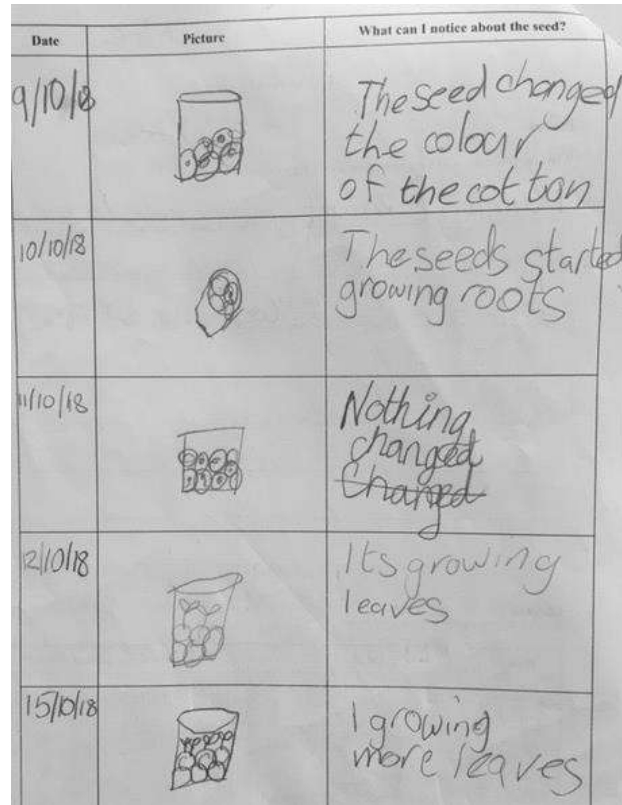 Date
Picture
What can I notice about the seed?
9/10/18
The seed changed
the colour
of the cotton
10/10/18
The seeds started
growing roots
11/10/18
Nothing
changed
Changed
12/10/18
Its growing
leaves
15/10/18
I growing
more leaves